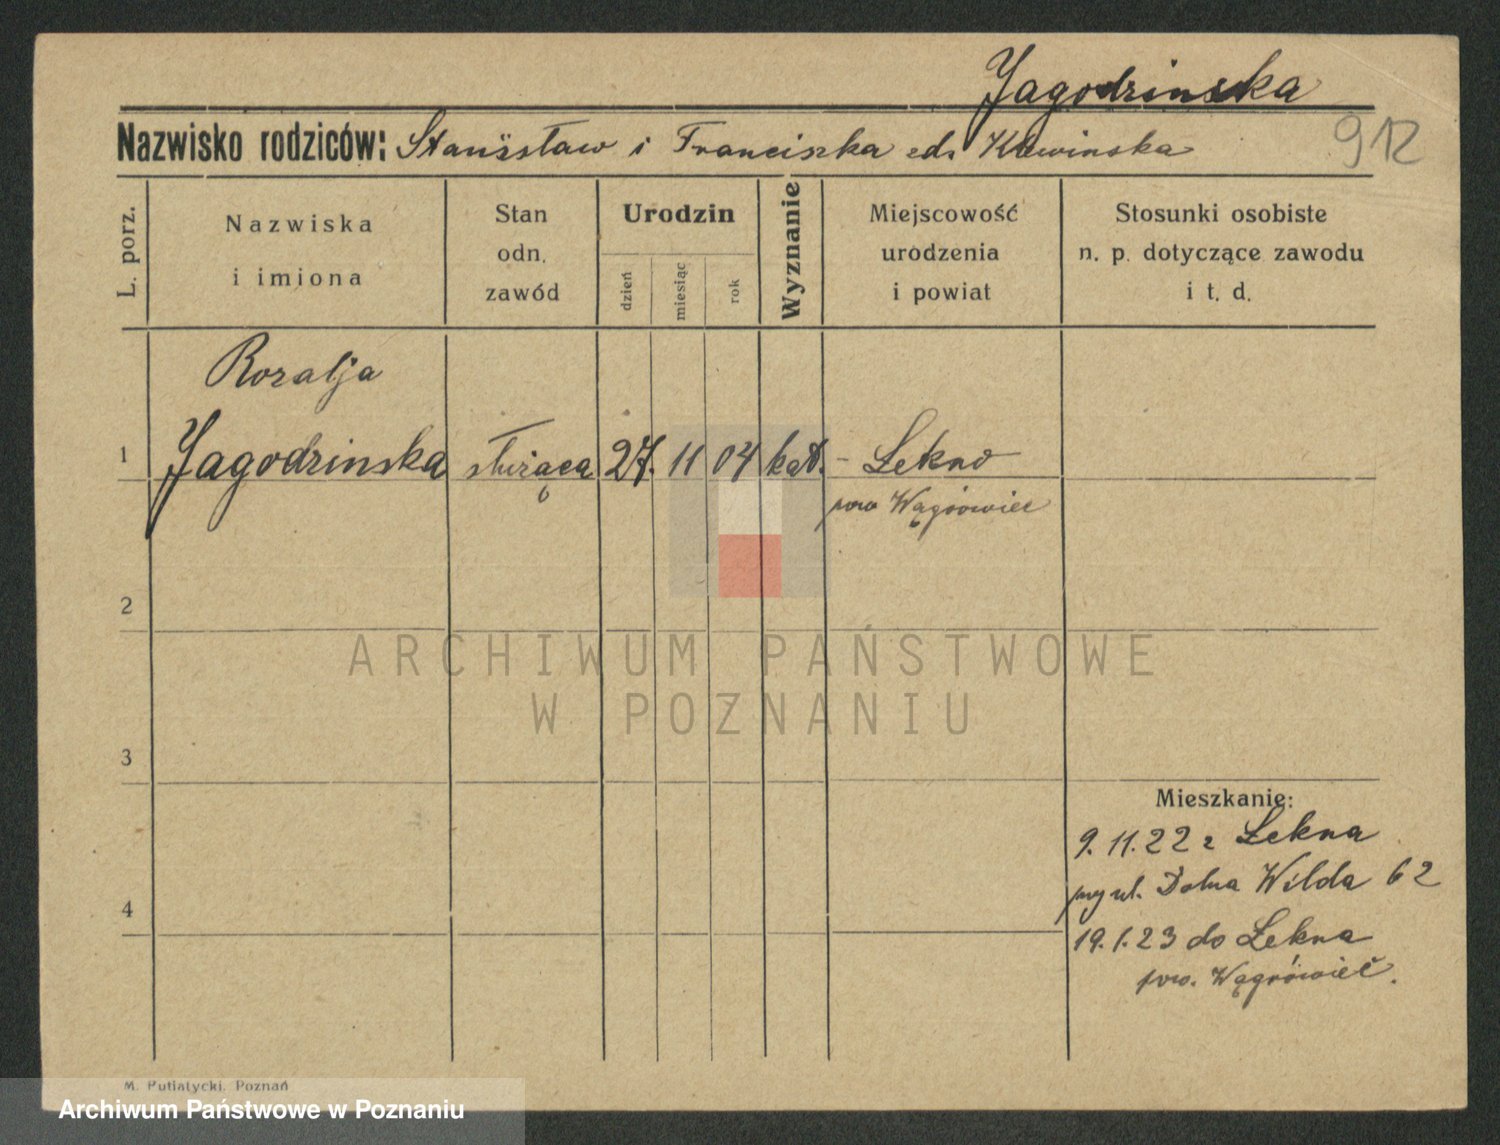 Jagodzinska
Nazwisko rodziców: Stanisław i Franciszka zd.
912
L. porz.
Nazwiska
i imiona
Stan
odn.
zawód
Urodzin
dzień
miesiąc
rok
Wyznanie
Miejscowość
urodzenia
i powiat
Stosunki osobiste
n. p. dotyczące zawodu
i t. d.
Rozalja
1 Jagodzinska służąca 27. 11 04 kat. - Łekno
pow Wągrówiec
2
ARCHIWUM PAŃSTWOWE
W POZNANIU
3
Mieszkanie:
9. 11. 22 z Łekna
ul. Dolna Wilda 62
4
19. 1. 23 do Łekna
pow. Wągrówiec.
M. Putiatycki, Poznań
Archiwum Państwowe w Poznaniu